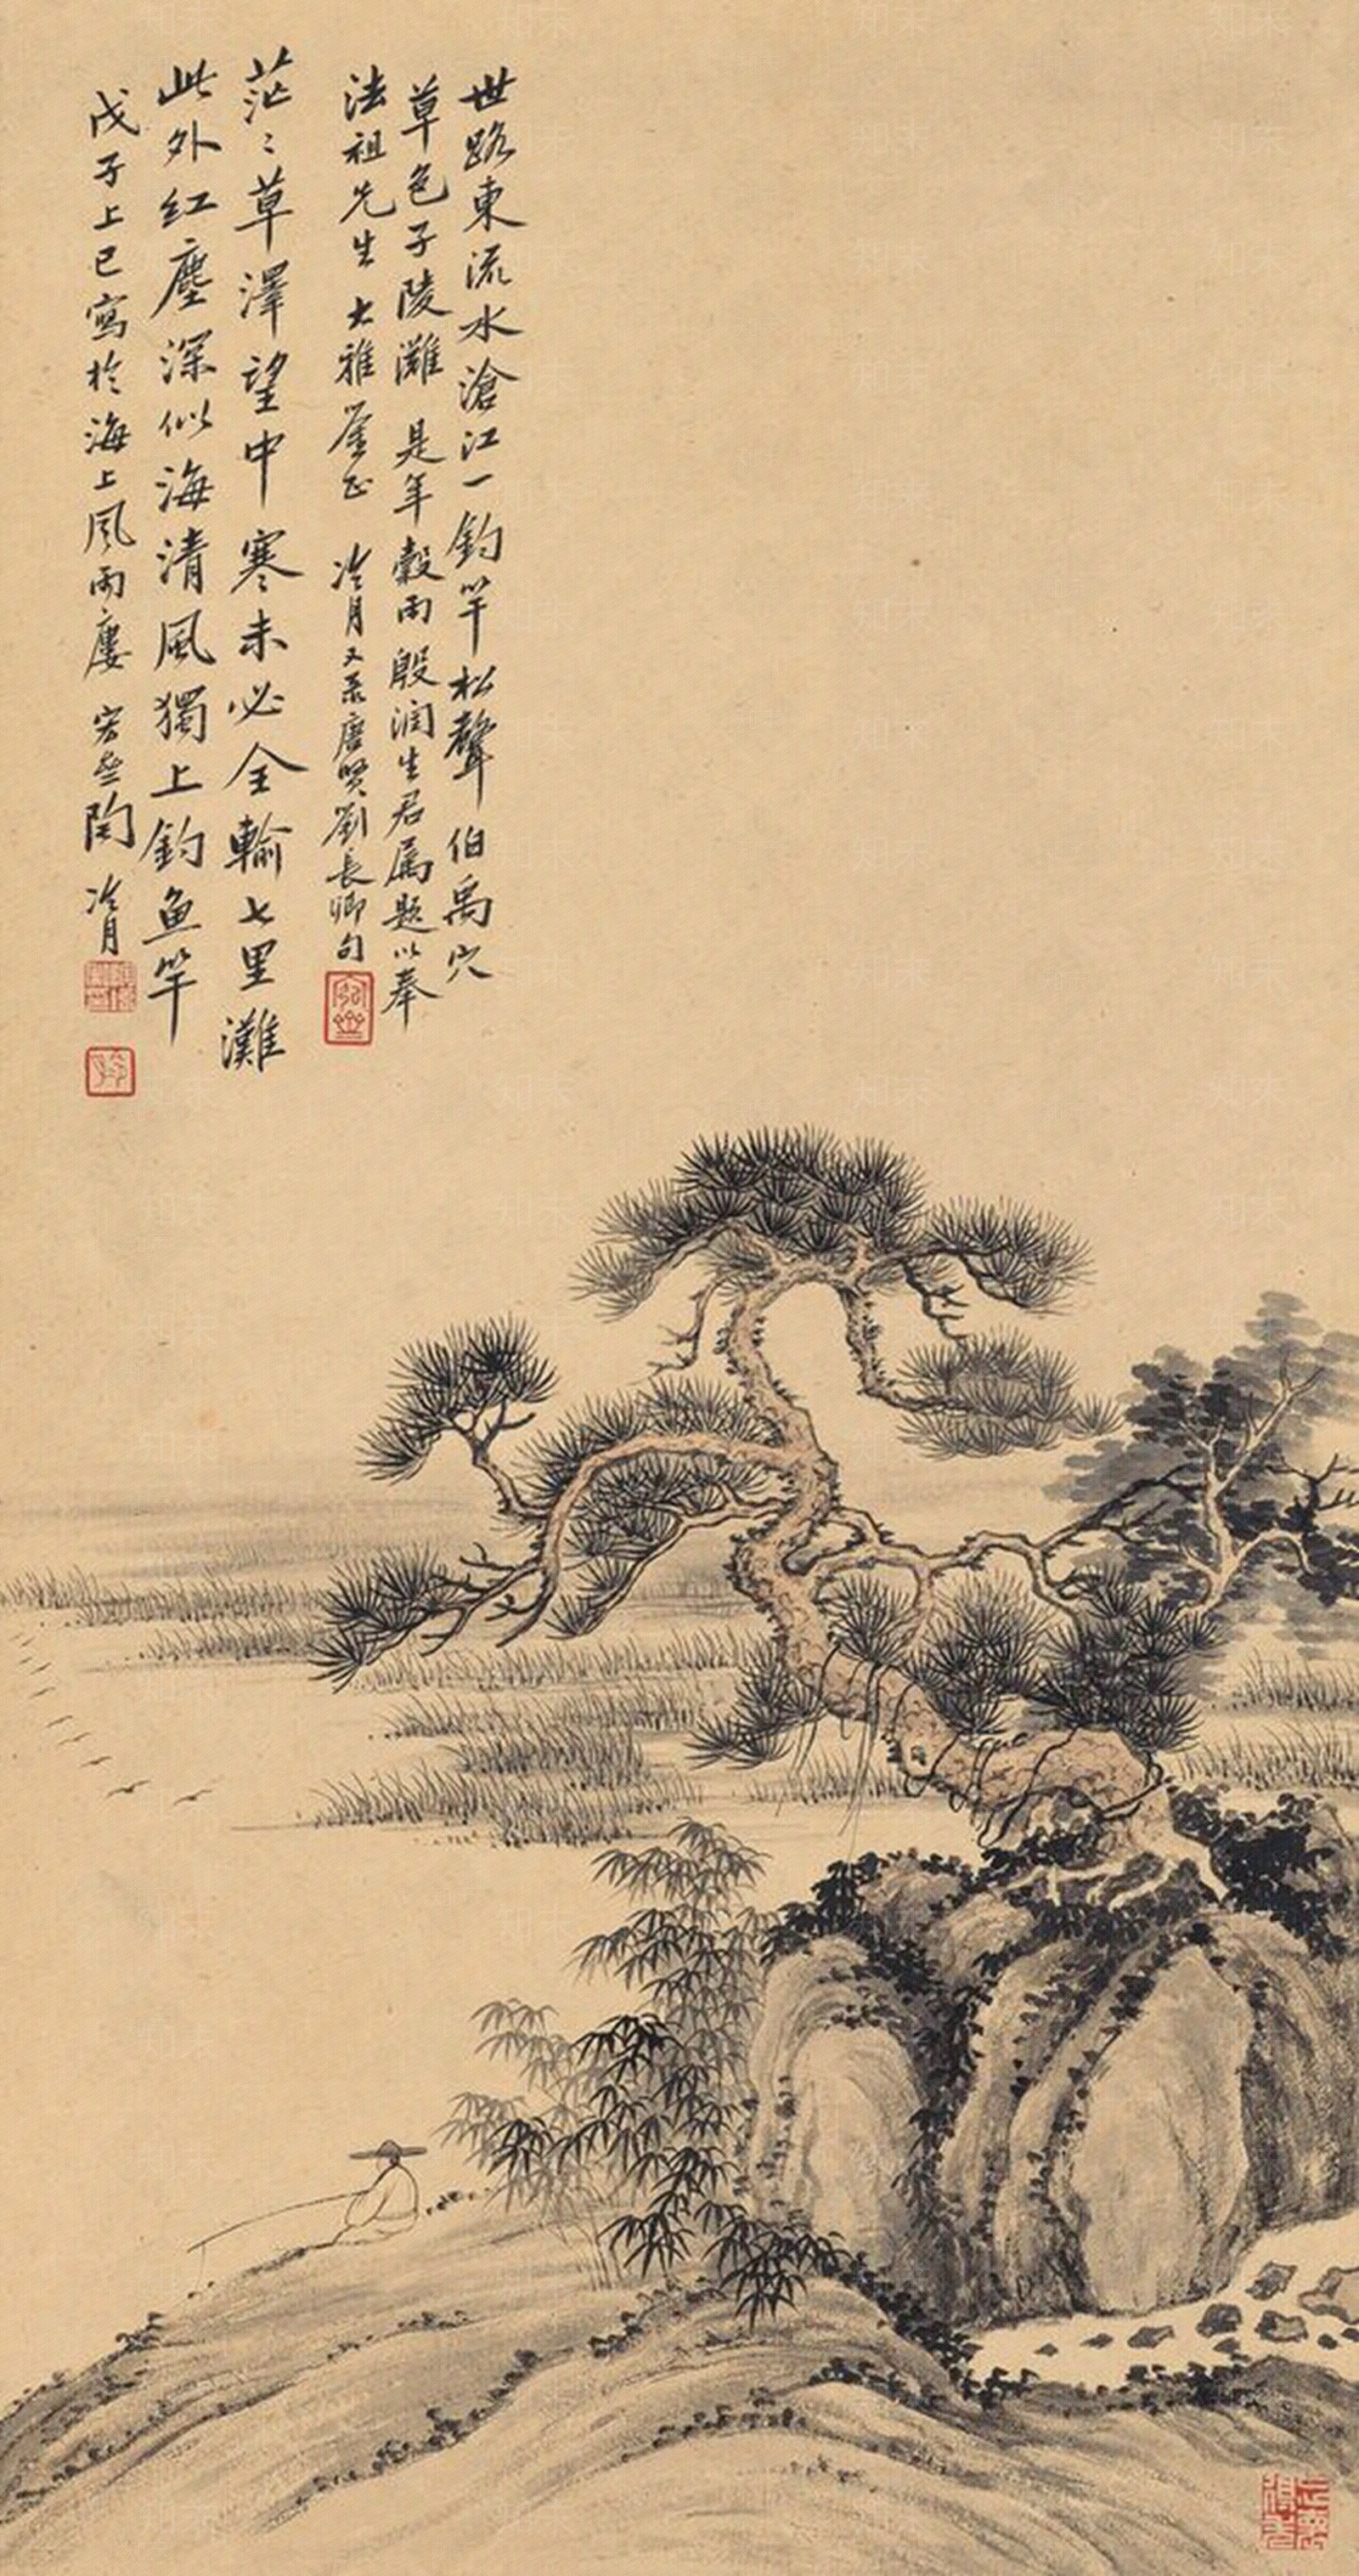 世路東流水滄江一釣竿松聲伯禹穴
草色子陵灘 是年穀雨殷润生君属題以奉
法祖先生大雅鉴正 冷月又录唐贤劉長卿句
茫々草澤望中寒未必全輸七里灘
此外红塵深似海清風獨上釣鱼竿
戊子上巳寫於海上風雨廔 宏斋陶冷月
知末